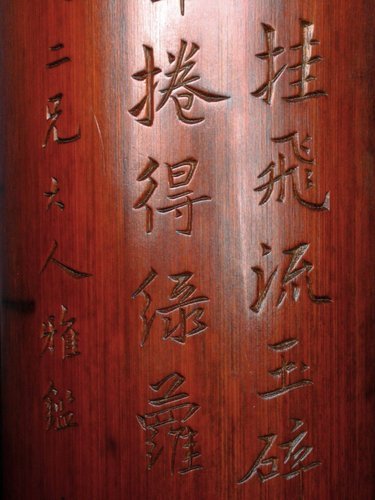 挂飛流玉碎
捲得綠蘿
二兄大人雅鑒